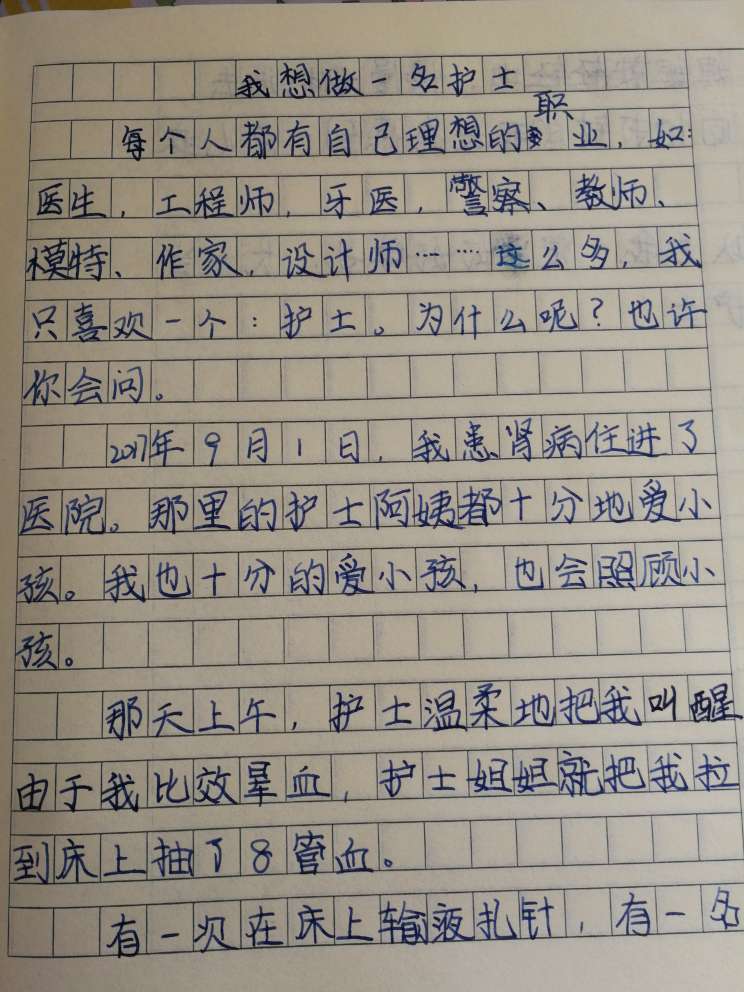 我想做一名护士
每个人都有自己理想的职业，如：
医生，工程师，牙医，警察、教师、
模特、作家，设计师……这么多，我
只喜欢一个：护士。为什么呢？也许
你会问。
2017年9月1日，我患肾病住进了
医院。那里的护士阿姨都十分地爱小
孩。我也十分的爱小孩，也会照顾小
孩。
那天上午，护士温柔地把我叫醒
由于我比效晕血，护士姐姐就把我拉
到床上抽了8管血。
有一次在床上输液扎针，有一名